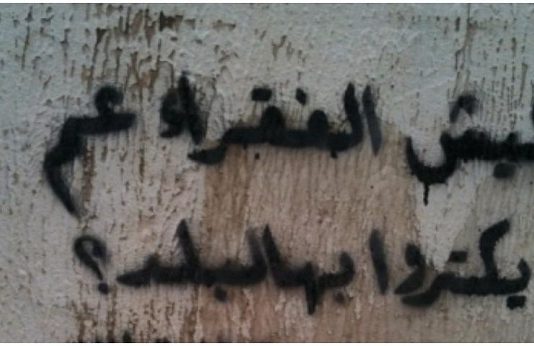 ليش الفقراء عم
يكتروا بهالبلد؟